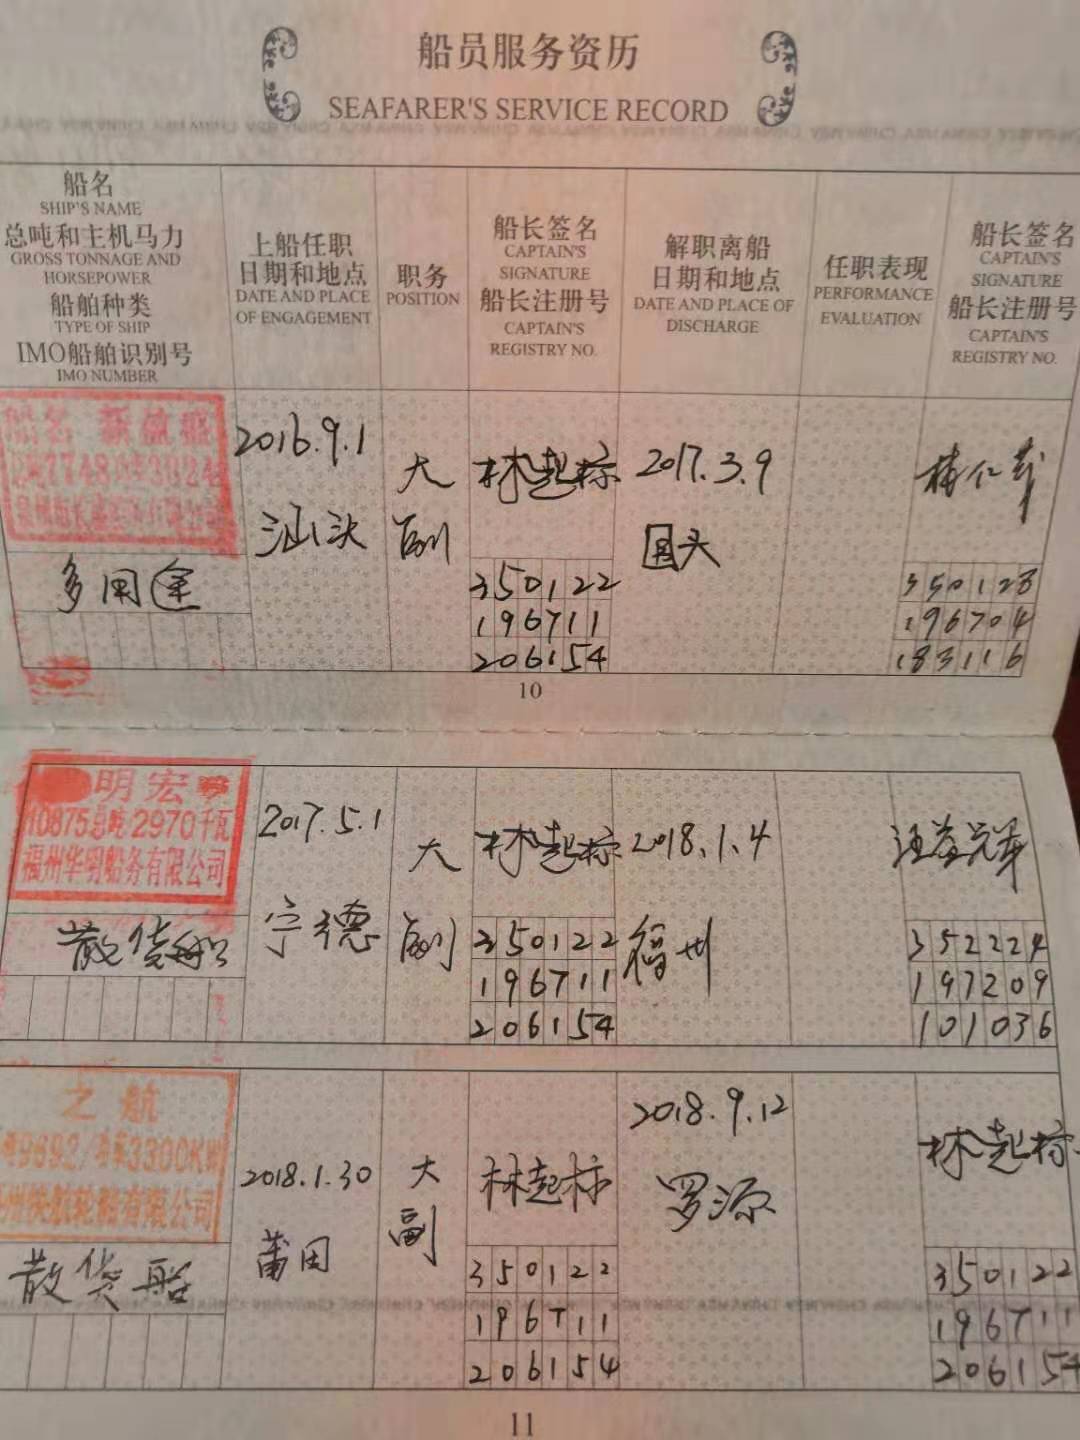 船员服务资历
SEAFARER'S SERVICE RECORD
船名
SHIP'S NAME
总吨和主机马力
GROSS TONNAGE AND
HORSEPOWER
船舶种类
TYPE OF SHIP
IMO船舶识别号
IMO NUMBER
上船任职
日期和地点
DATE AND PLACE
OF ENGAGEMENT
职务
POSITION
船长签名
CAPTAIN'S
SIGNATURE
船长注册号
CAPTAIN'S
REGISTRY NO.
解职离船
日期和地点
DATE AND PLACE OF
DISCHARGE
任职表现
PERFORMANCE
EVALUATION
船长签名
CAPTAIN'S
SIGNATURE
船长注册号
CAPTAIN'S
REGISTRY NO.
船名 新盛
多用途
2016.9.1
汕头
大
副
林起标
350122
196711
206154
2017.3.9
国头
350128
196704
183116
10
明宏
10875总吨/2970千瓦
福州华明船务有限公司
散货船
2017.5.1
宁德
大
副
林起标
350122
196711
206154
2018.1.4
福州
352224
197209
101036
之航
9692/功率3300KW
州快航轮船有限公司
散货船
2018.1.30
莆田
大
副
林起标
350122
196711
206154
2018.9.12
罗源
林起标
350122
196711
206154
11